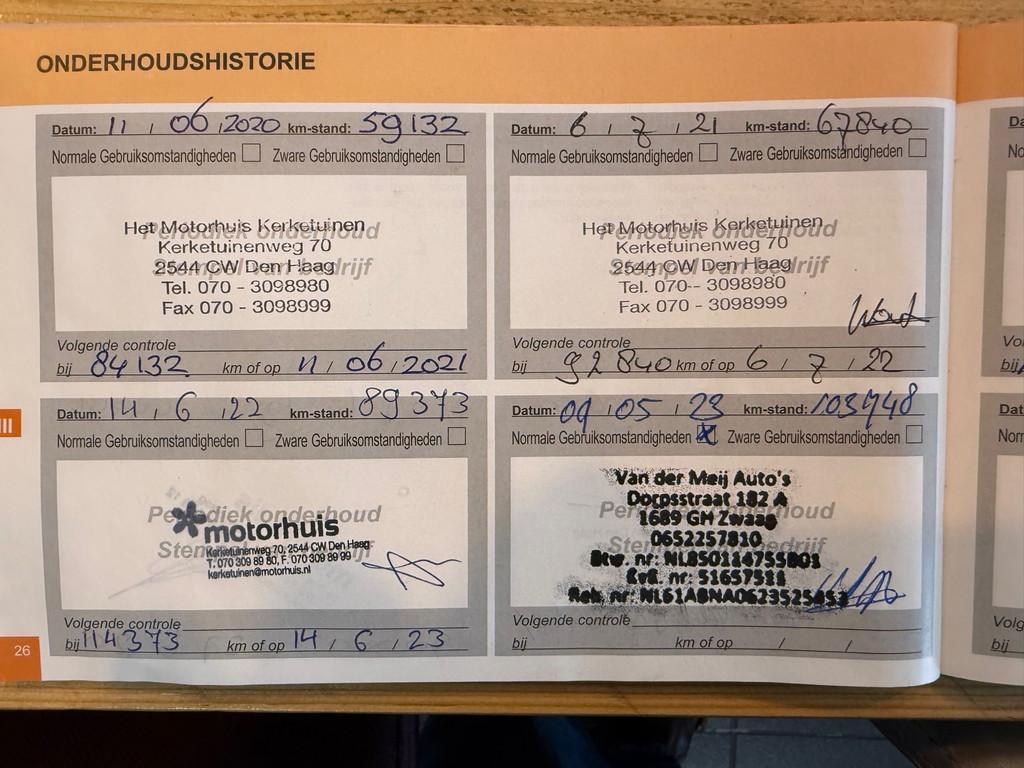 ONDERHOUDSHISTORIE
Datum: 11 / 06 / 2020 km-stand: 59132
Normale Gebruiksomstandigheden Zware Gebruiksomstandigheden
Periodiek onderhoud
Stempel van bedrijf
Het Motorhuis Kerketuinen
Kerketuinenweg 70
2544 CW Den Haag
Tel. 070 - 3098980
Fax 070 - 3098999
Volgende controle
bij 84132 km of op 11 / 06 / 2021
Datum: 6 / 7 / 21 km-stand: 67840
Normale Gebruiksomstandigheden Zware Gebruiksomstandigheden
Periodiek onderhoud
Stempel van bedrijf
Het Motorhuis Kerketuinen
Kerketuinenweg 70
2544 CW Den Haag
Tel. 070-- 3098980
Fax 070 - 3098999
Volgende controle
bij 92840 km of op 6 / 7 / 22
Datum: 14 / 6 / 22 km-stand: 89373
Normale Gebruiksomstandigheden Zware Gebruiksomstandigheden
Periodiek onderhoud
Stempel van bedrijf
motorhuis
Kerketuinenweg 70, 2544 CW Den Haag
T. 070 309 89 80, F. 070 309 89 99
kerketuinen@motorhuis.nl
Volgende controle
bij 114373 km of op 14 / 6 / 23
Datum: 09 / 05 / 23 km-stand: 103448
Normale Gebruiksomstandigheden X Zware Gebruiksomstandigheden
Periodiek onderhoud
Stempel van bedrijf
Van der Meij Auto's
Dorpsstraat 182 A
1689 GH Zwaag
0652257810
Btw. nr: NL850114755B01
KvK. nr: 51657511
Rek. nr: NL61ABNA0623525453
Volgende controle
bij km of op / /
III
26